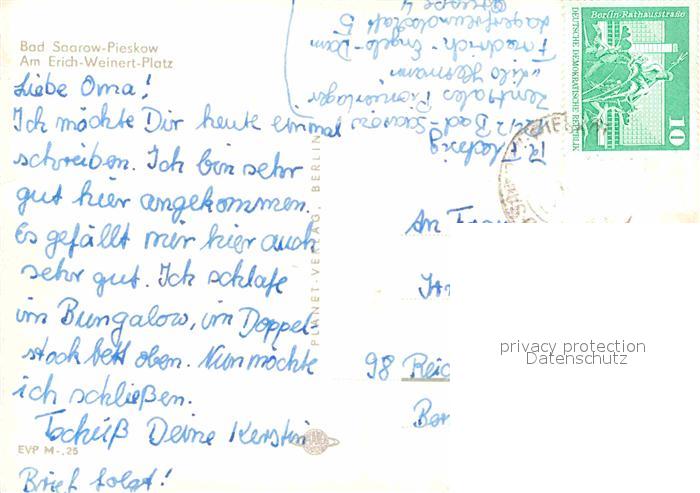 Bad Saarow-Pieskow
Am Erich-Weinert-Platz
Liebe Oma!
Ich möchte Dir heute einmal
schreiben. Ich bin sehr
gut hier angekommen.
Es gefällt mir hier auch
sehr gut. Ich schlafe
im Bungalow, im Doppel-
stockbett oben. Nun möchte
ich schließen.
Tschüß Deine Kerstin
Brief folgt!
EVP M -,25
PLANET-VERLAG, BERLIN
Bad-Saarow
Zentrales Pionierlager
Friedrich-Engels-Dam
Lagerfreundschaft 5
Gruppe 4
Berlin-Rathausstraße
DEUTSCHE DEMOKRATISCHE REPUBLIK
10
An
98 Reic
privacy protection
Datenschutz